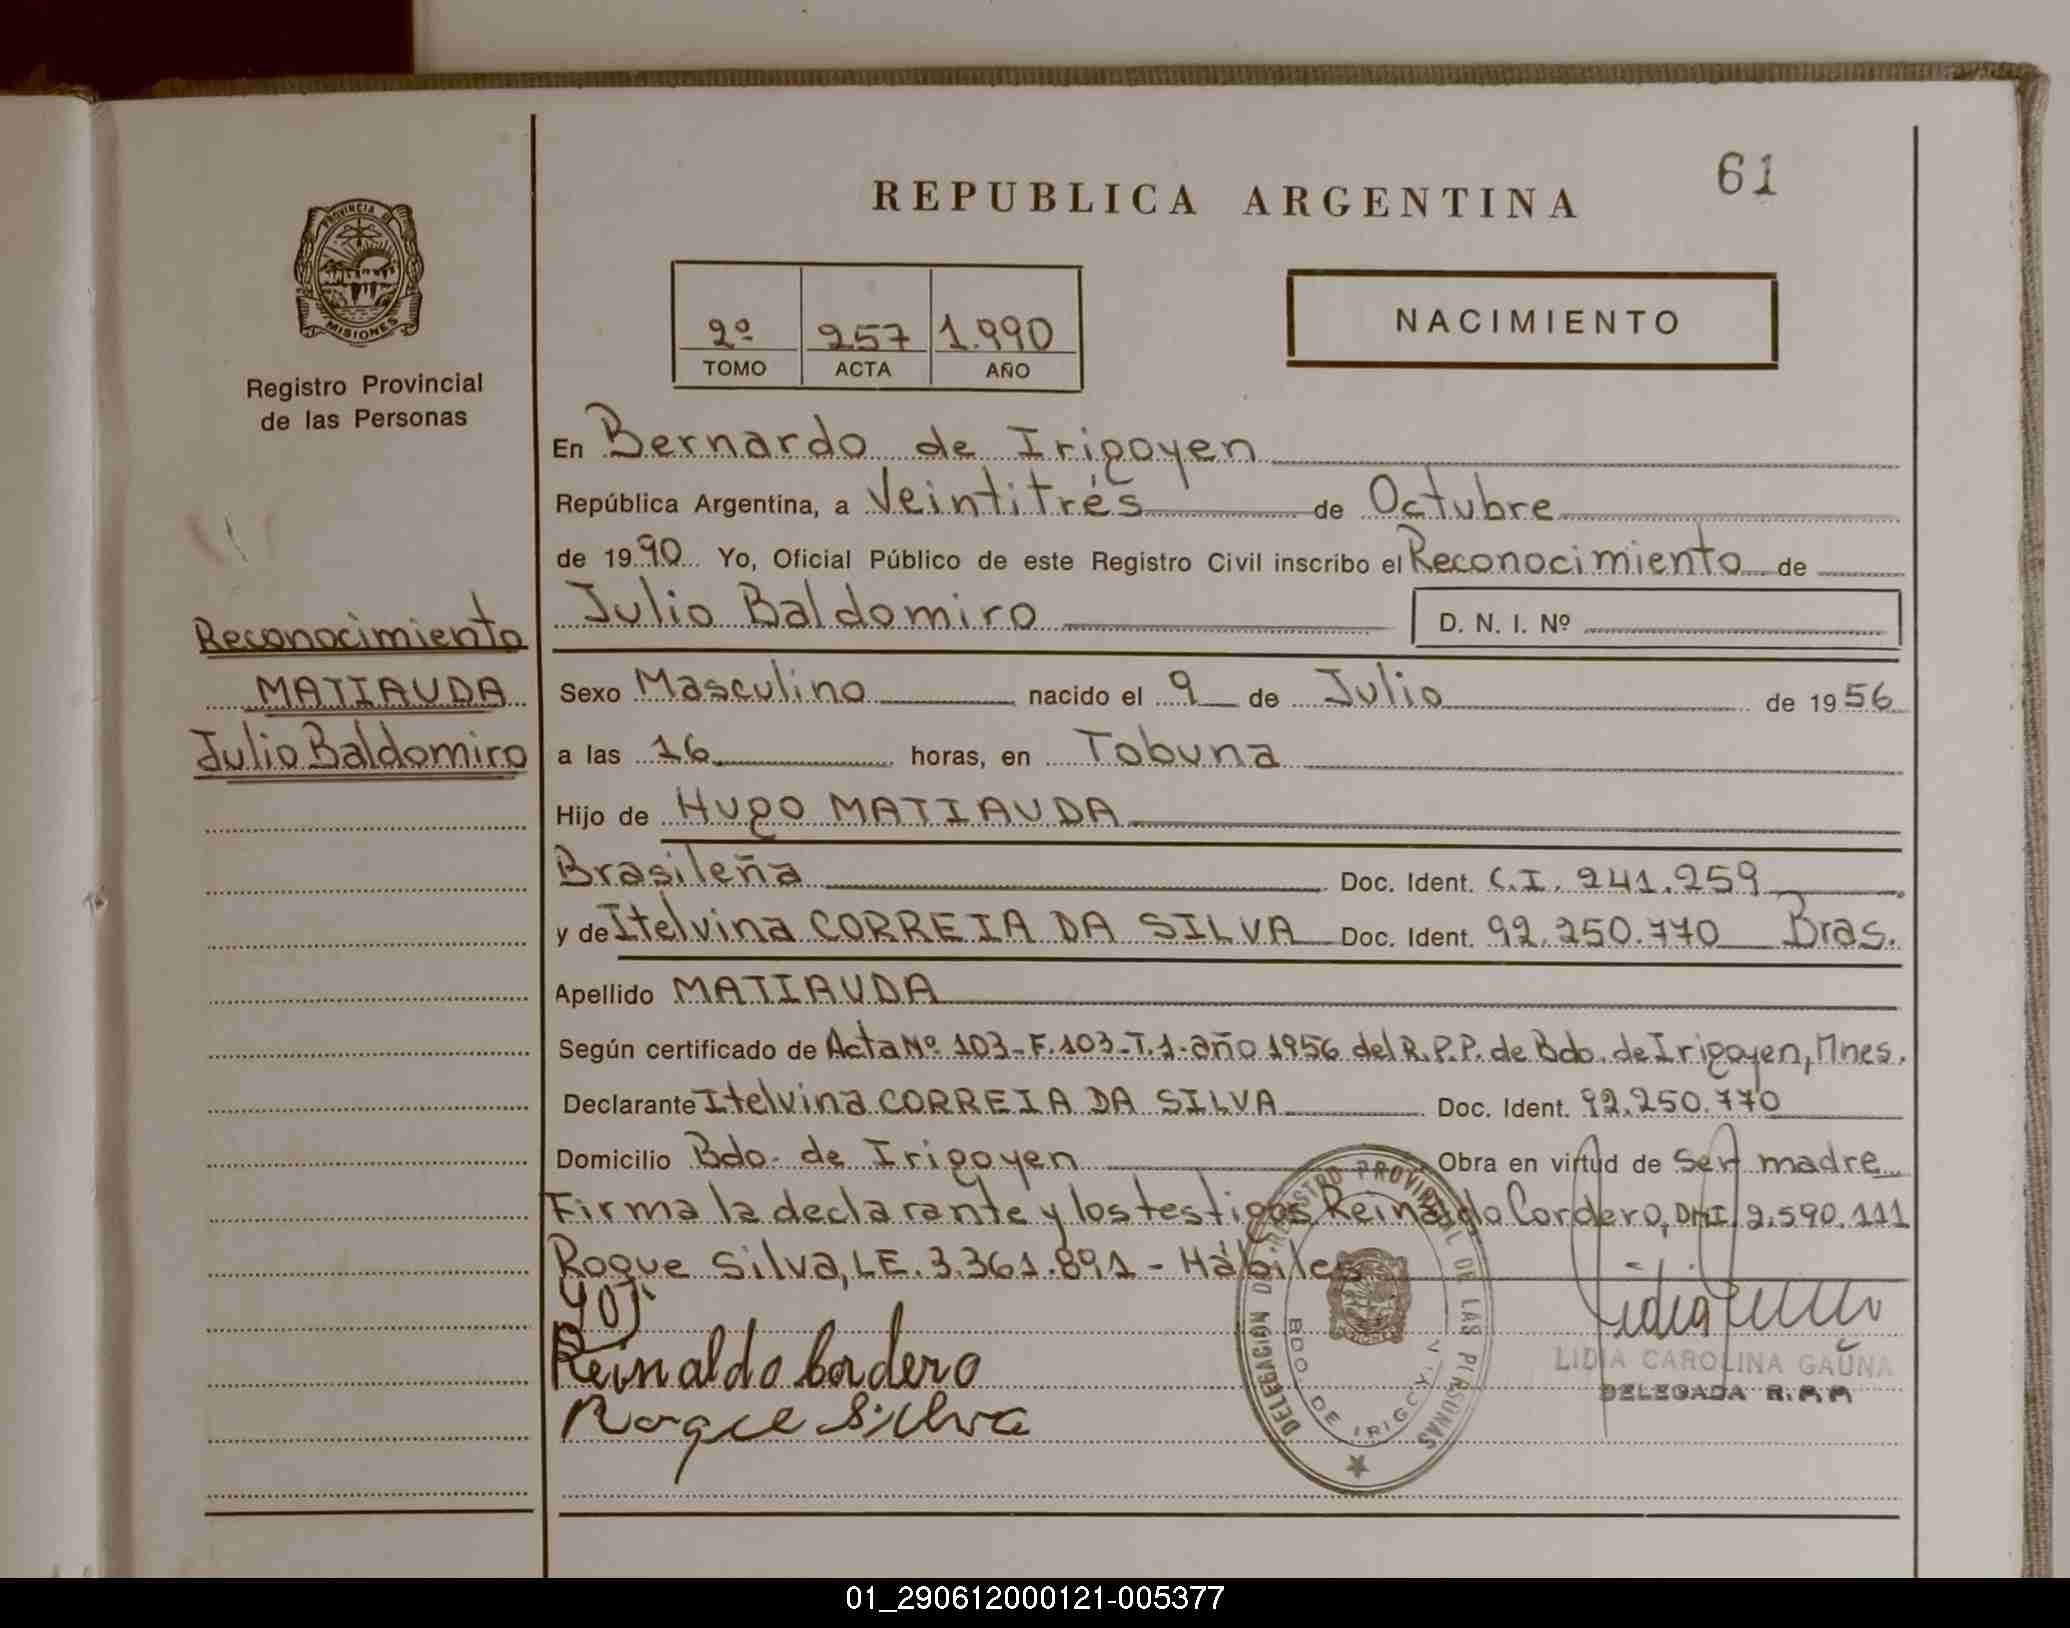 REPUBLICA ARGENTINA
61
PROVINCIA D
MISIONES
Registro Provincial
de las Personas
2º 257 1.990
TOMO ACTA AÑO
NACIMIENTO
En Bernardo de Irigoyen
República Argentina, a Veintitrés de Octubre
de 1990 Yo, Oficial Público de este Registro Civil inscribo el Reconocimiento de
Julio Baldomiro D. N. I. Nº
Reconocimiento
MATIAUDA
Julio Baldomiro
Sexo Masculino nacido el 9 de Julio de 1956
a las 16 horas, en Tobuna
Hijo de Hugo MATIAUDA
Brasileña Doc. Ident. C.I. 241.259
y de Itelvina CORREIA DA SILVA Doc. Ident. 92.250.770 Bras.
Apellido MATIAUDA
Según certificado de Acta Nº 103-F.103-T.1-año 1956 del R.P.P. de Bdo. de Irigoyen, Mnes.
Declarante Itelvina CORREIA DA SILVA Doc. Ident. 92.250.770
Domicilio Bdo. de Irigoyen Obra en virtud de ser madre
Firma la declarante y los testigos Reinaldo Cordero, DNI. 2.590.111
Roque Silva, L.E. 3.361.891 - Hábiles
Reinaldo Cordero
Roque Silva
DELEGACIÓN DEL REGISTRO PROVINCIAL DE LAS PERSONAS
BDO. DE IRIGOYEN
LIDIA CAROLINA GAUNA
DELEGADA R.P.P.
01_290612000121-005377